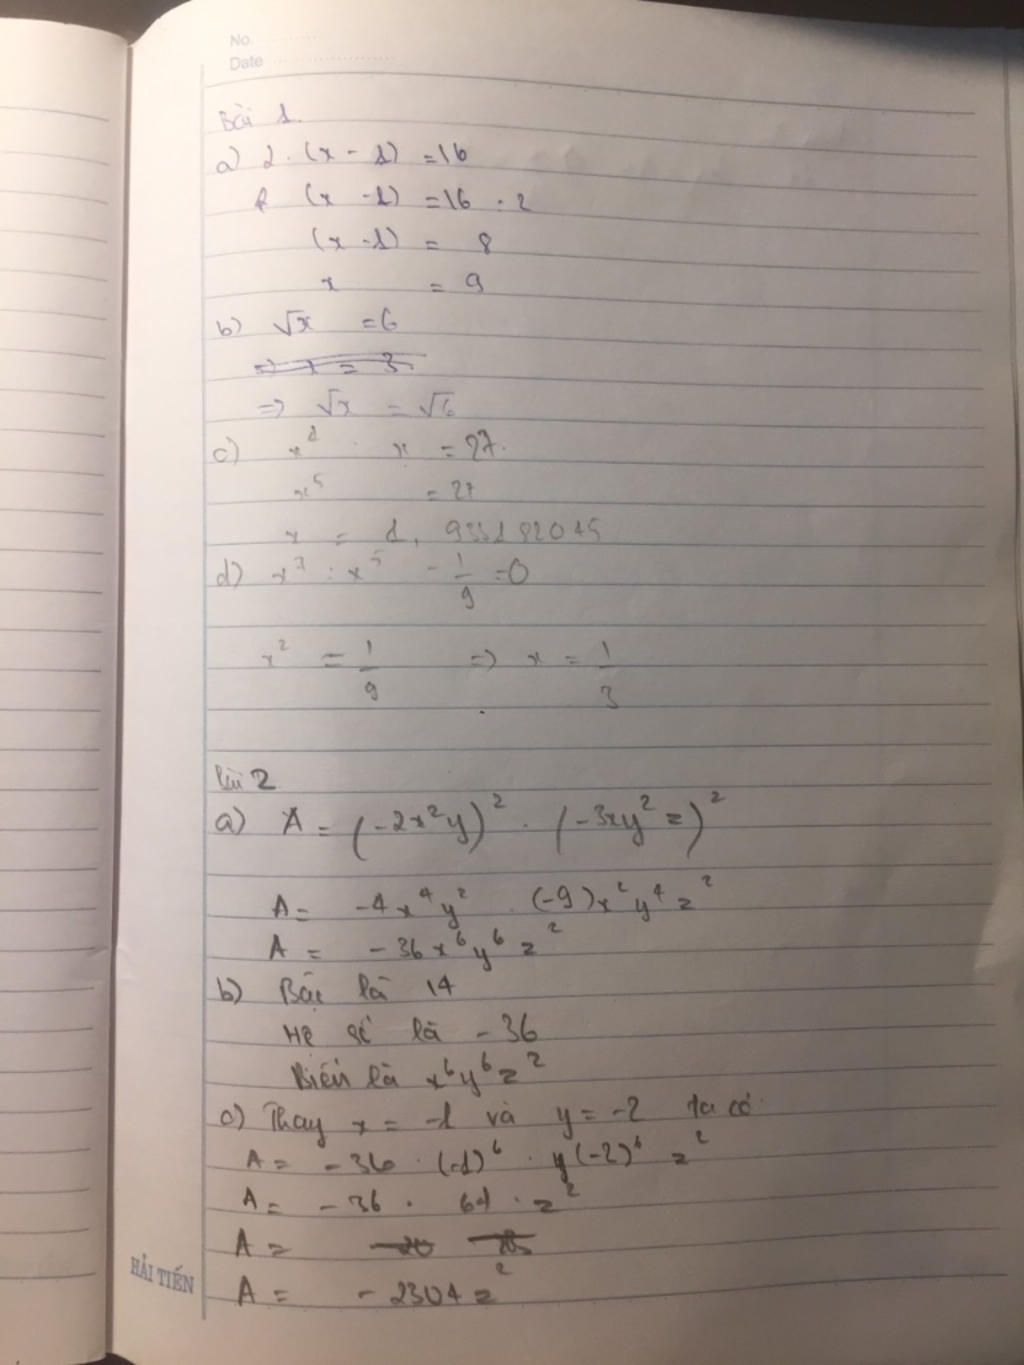 No.
Date
Bài 1.
a) 2 . (x - 1) = 16
(x - 1) = 16 : 2
(x - 1) = 8
x = 9
b) √x = 6
=> x = 3
=> √x = √6
c) x . x = 27.
x⁵ = 27
x = 1,933182045
d) x⁷ : x⁵ - 1/9 = 0
x² = 1/9 => x = 1/3
Bài 2
a) A = (-2x²y)² . (-3xy²z)²
A = -4x⁴y² . (-9)x²y⁴z²
A = -36x⁶y⁶z²
b) Bậc là 14
Hệ số là -36
Biến là x⁶y⁶z²
c) Thay x = -1 và y = -2 ta có
A = -36 . (-1)⁶ . y(-2)⁶ z²
A = -36 . 64 . z²
A =
A = -2304z²
HẢI TIẾN